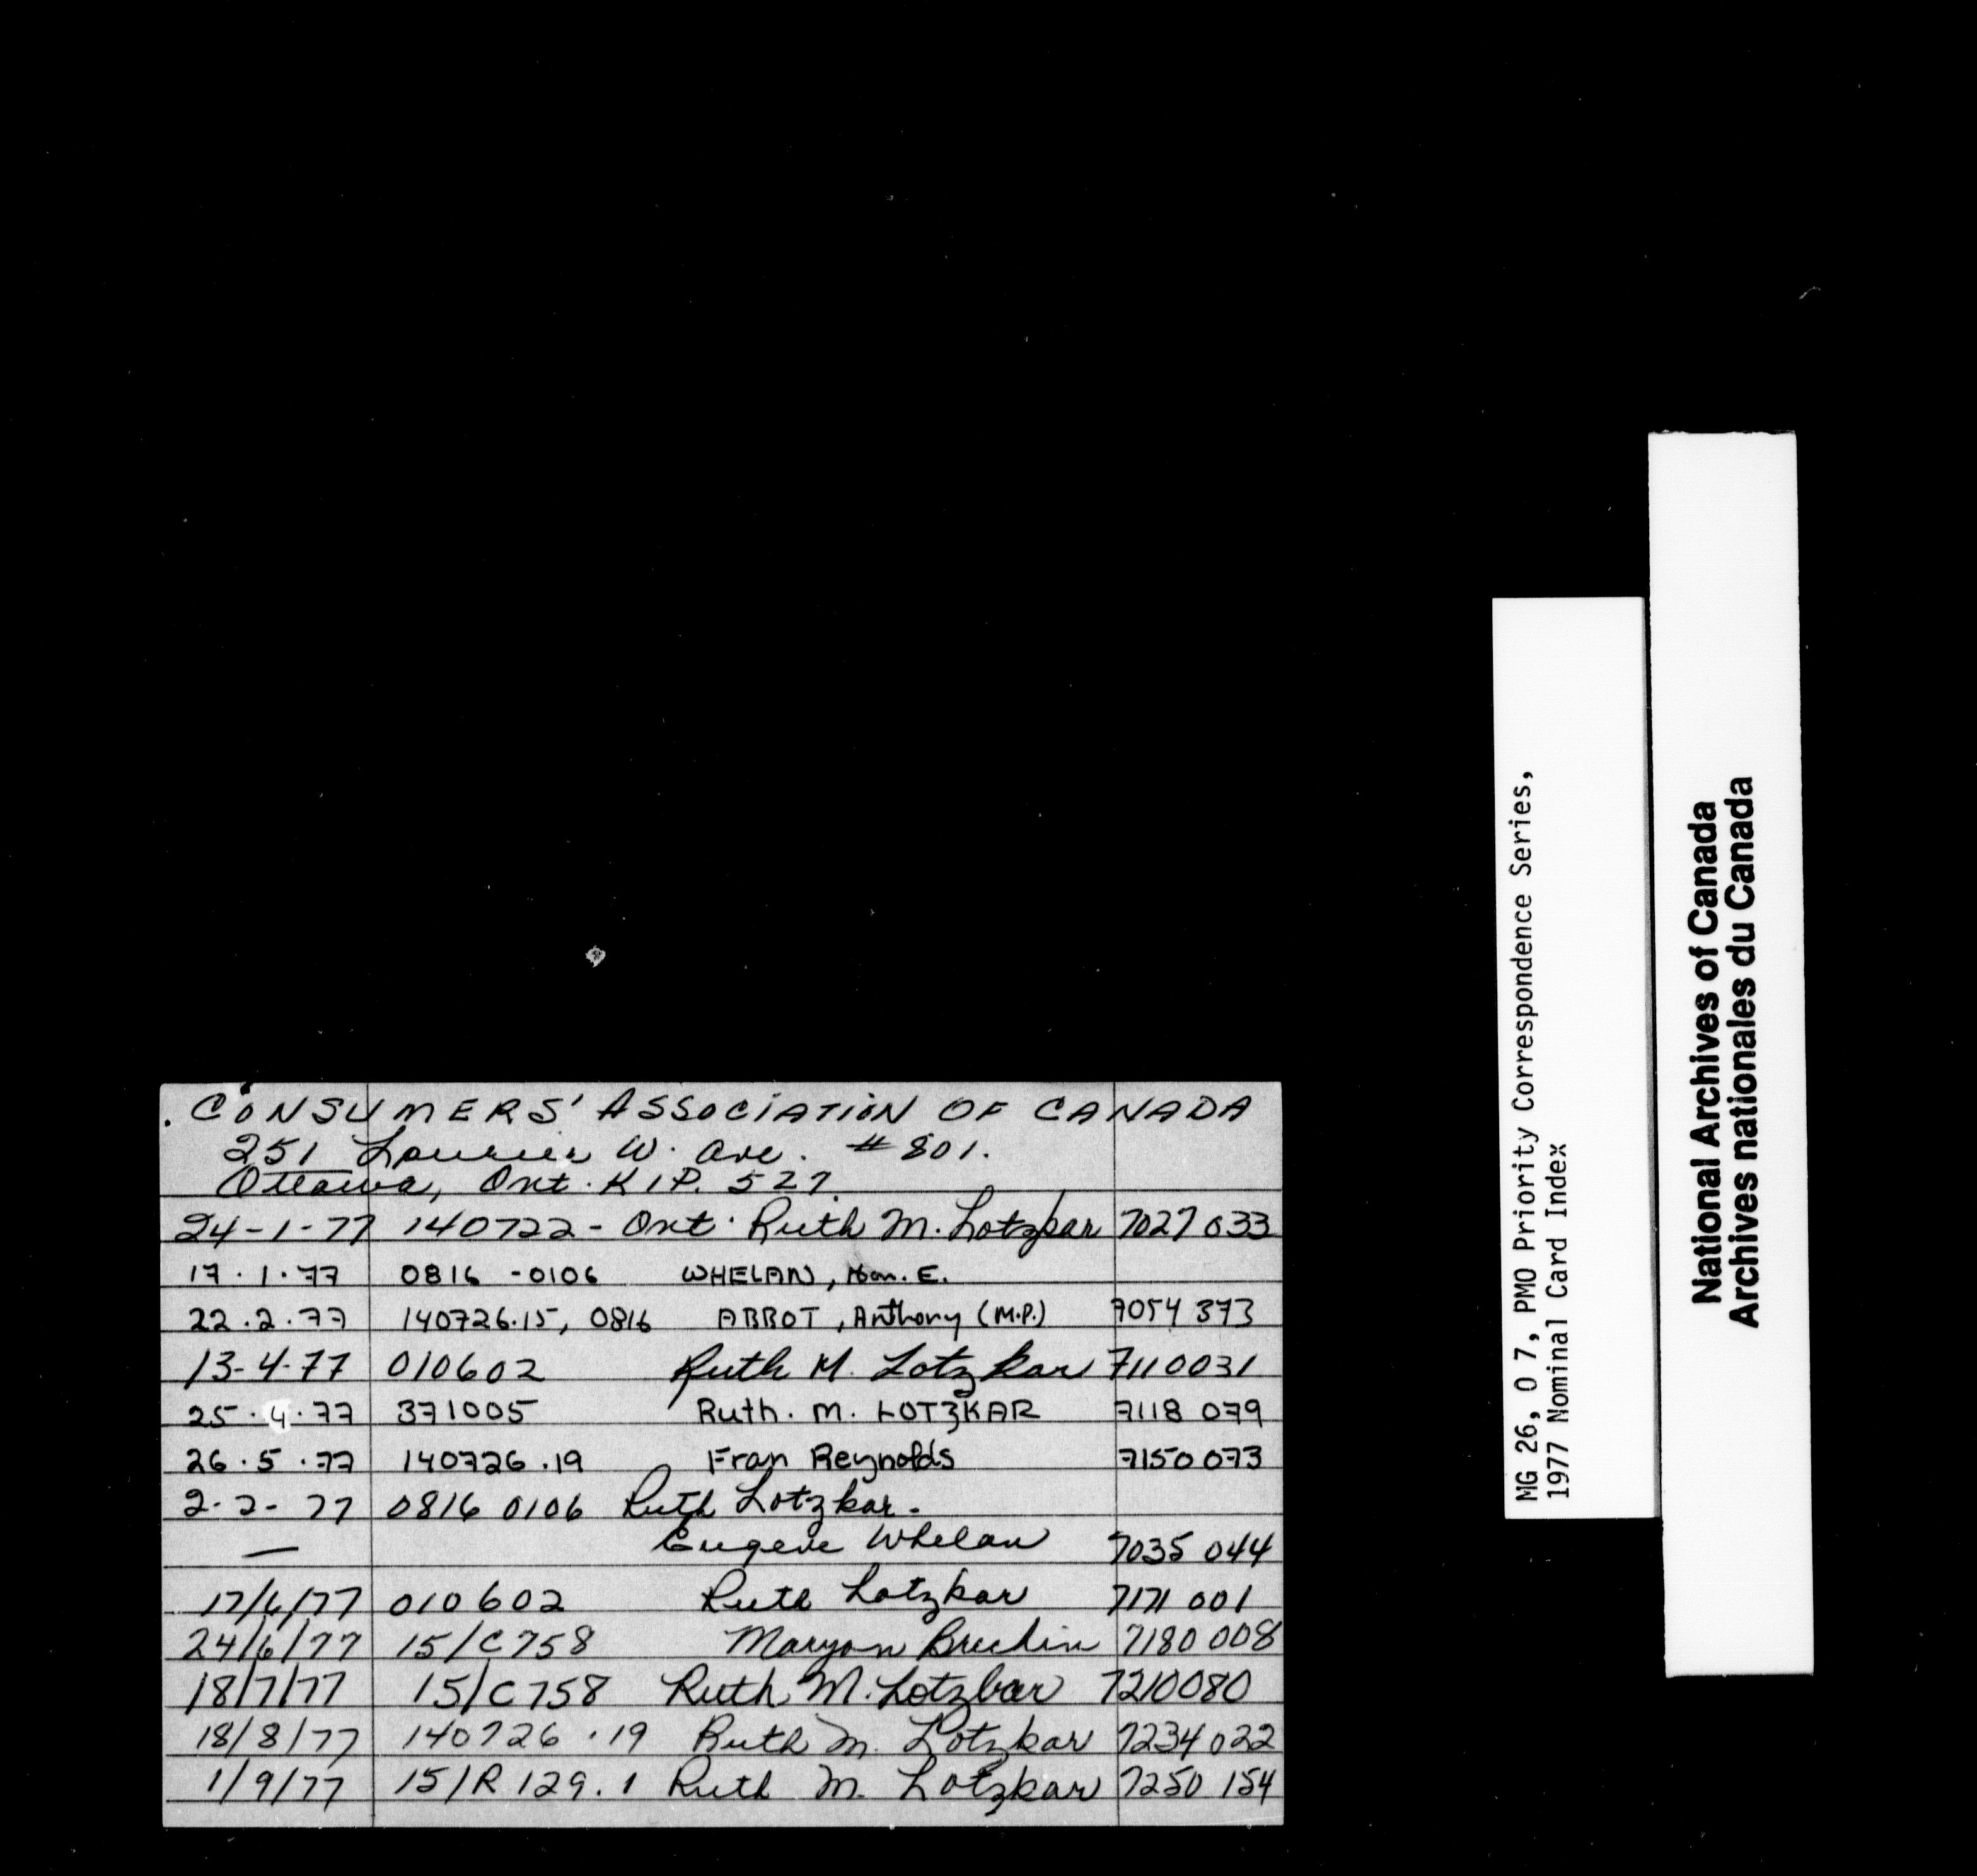 . CONSUMERS' ASSOCIATION OF CANADA
251 Laurier W. Ave. #801.
Ottawa, Ont. K1P. 527.
24-1-77 140722 - Ont. Ruth M. Lotzkar 7027 033
17.1.77 0816 -0106 WHELAN, Hon. E.
22.2.77 140726.15, 0816 ABBOT, Anthony (M.P.) 7054 373
13-4-77 010602 Ruth M. Lotzkar 7110031
25.4.77 371005 Ruth. M. LOTZKAR 7118 079
26.5.77 140726.19 Fran Reynolds 7150 073
2-2-77 0816 0106 Ruth Lotzkar.
— Eugene Whelan 7035 044
17/6/77 010602 Ruth Lotzkar 7171 001
24/6/77 15/C758 Maryon Brechin 7180 008
18/7/77 15/C758 Ruth M. Lotzkar 7210080
18/8/77 140726.19 Ruth M. Lotzkar 7234 022
1/9/77 15/R129.1 Ruth M. Lotzkar 7250 154
MG 26, O 7, PMO Priority Correspondence Series,
1977 Nominal Card Index
National Archives of Canada
Archives nationales du Canada